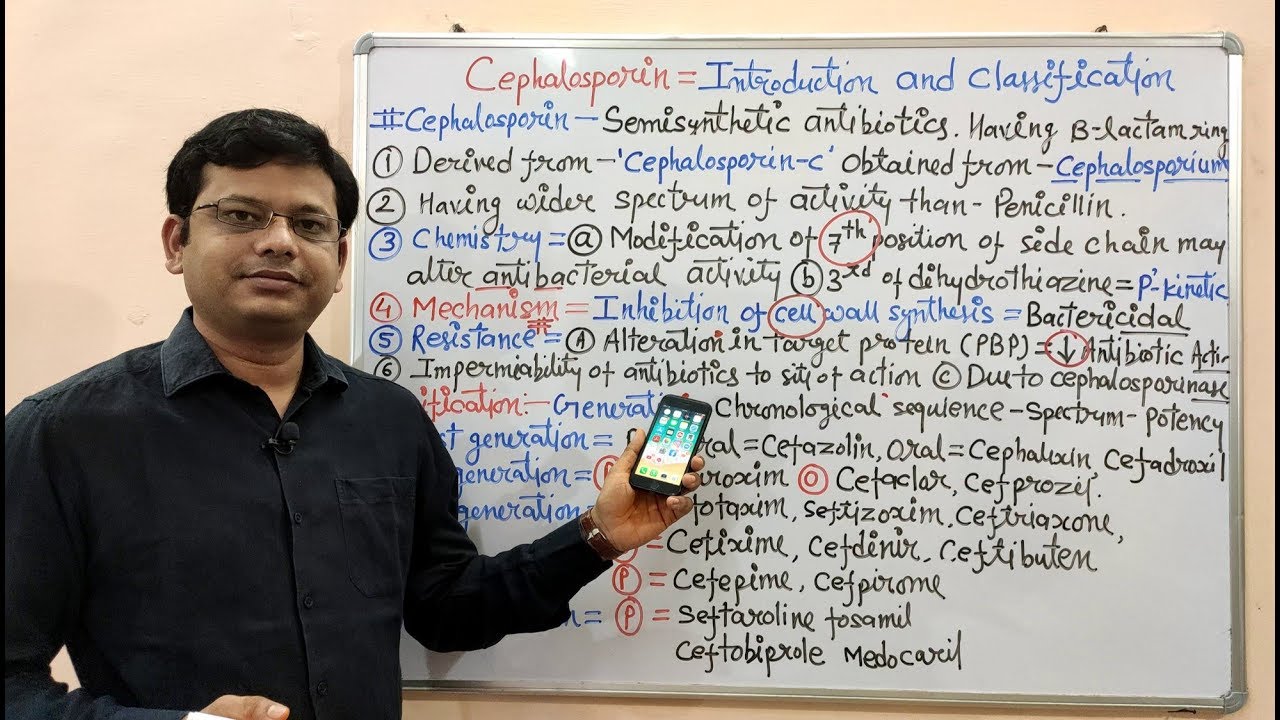 Cephalosporin = Introduction and Classification
# Cephalosporin - Semisynthetic antibiotics. Having B-lactam ring
① Derived from - 'Cephalosporin-c' Obtained from - Cephalosporium
② Having wider spectrum of activity than - Penicillin.
③ Chemistry = ⓐ Modification of 7th position of side chain may
alter antibacterial activity ⓑ 3rd of dihydrothiazine = P'-kinetic
④ Mechanism = Inhibition of cell wall synthesis = Bactericidal
⑤ Resistance = Ⓐ Alteration in target protein (PBP) = ↓ Antibiotic Acti-
⑥ Impermiability of antibiotics to site of action ⓒ Due to cephalosporinase
ification:- Generati Chronological sequience - Spectrum - Potency
st generation = ral = Cefazolin, Oral = Cephalixin, Cefadroxil
generation = Ⓟ uroxim Ⓞ Cefaclar, Cefprozil.
generation fotaxim, Seftizoxim, Ceftriaxone,
= Cefixime, Cefdinir, Ceftibuten
Ⓟ = Cefepime, Cefpirome
n = Ⓟ = Seftaroline fosamil
Ceftobiprole Medocaril